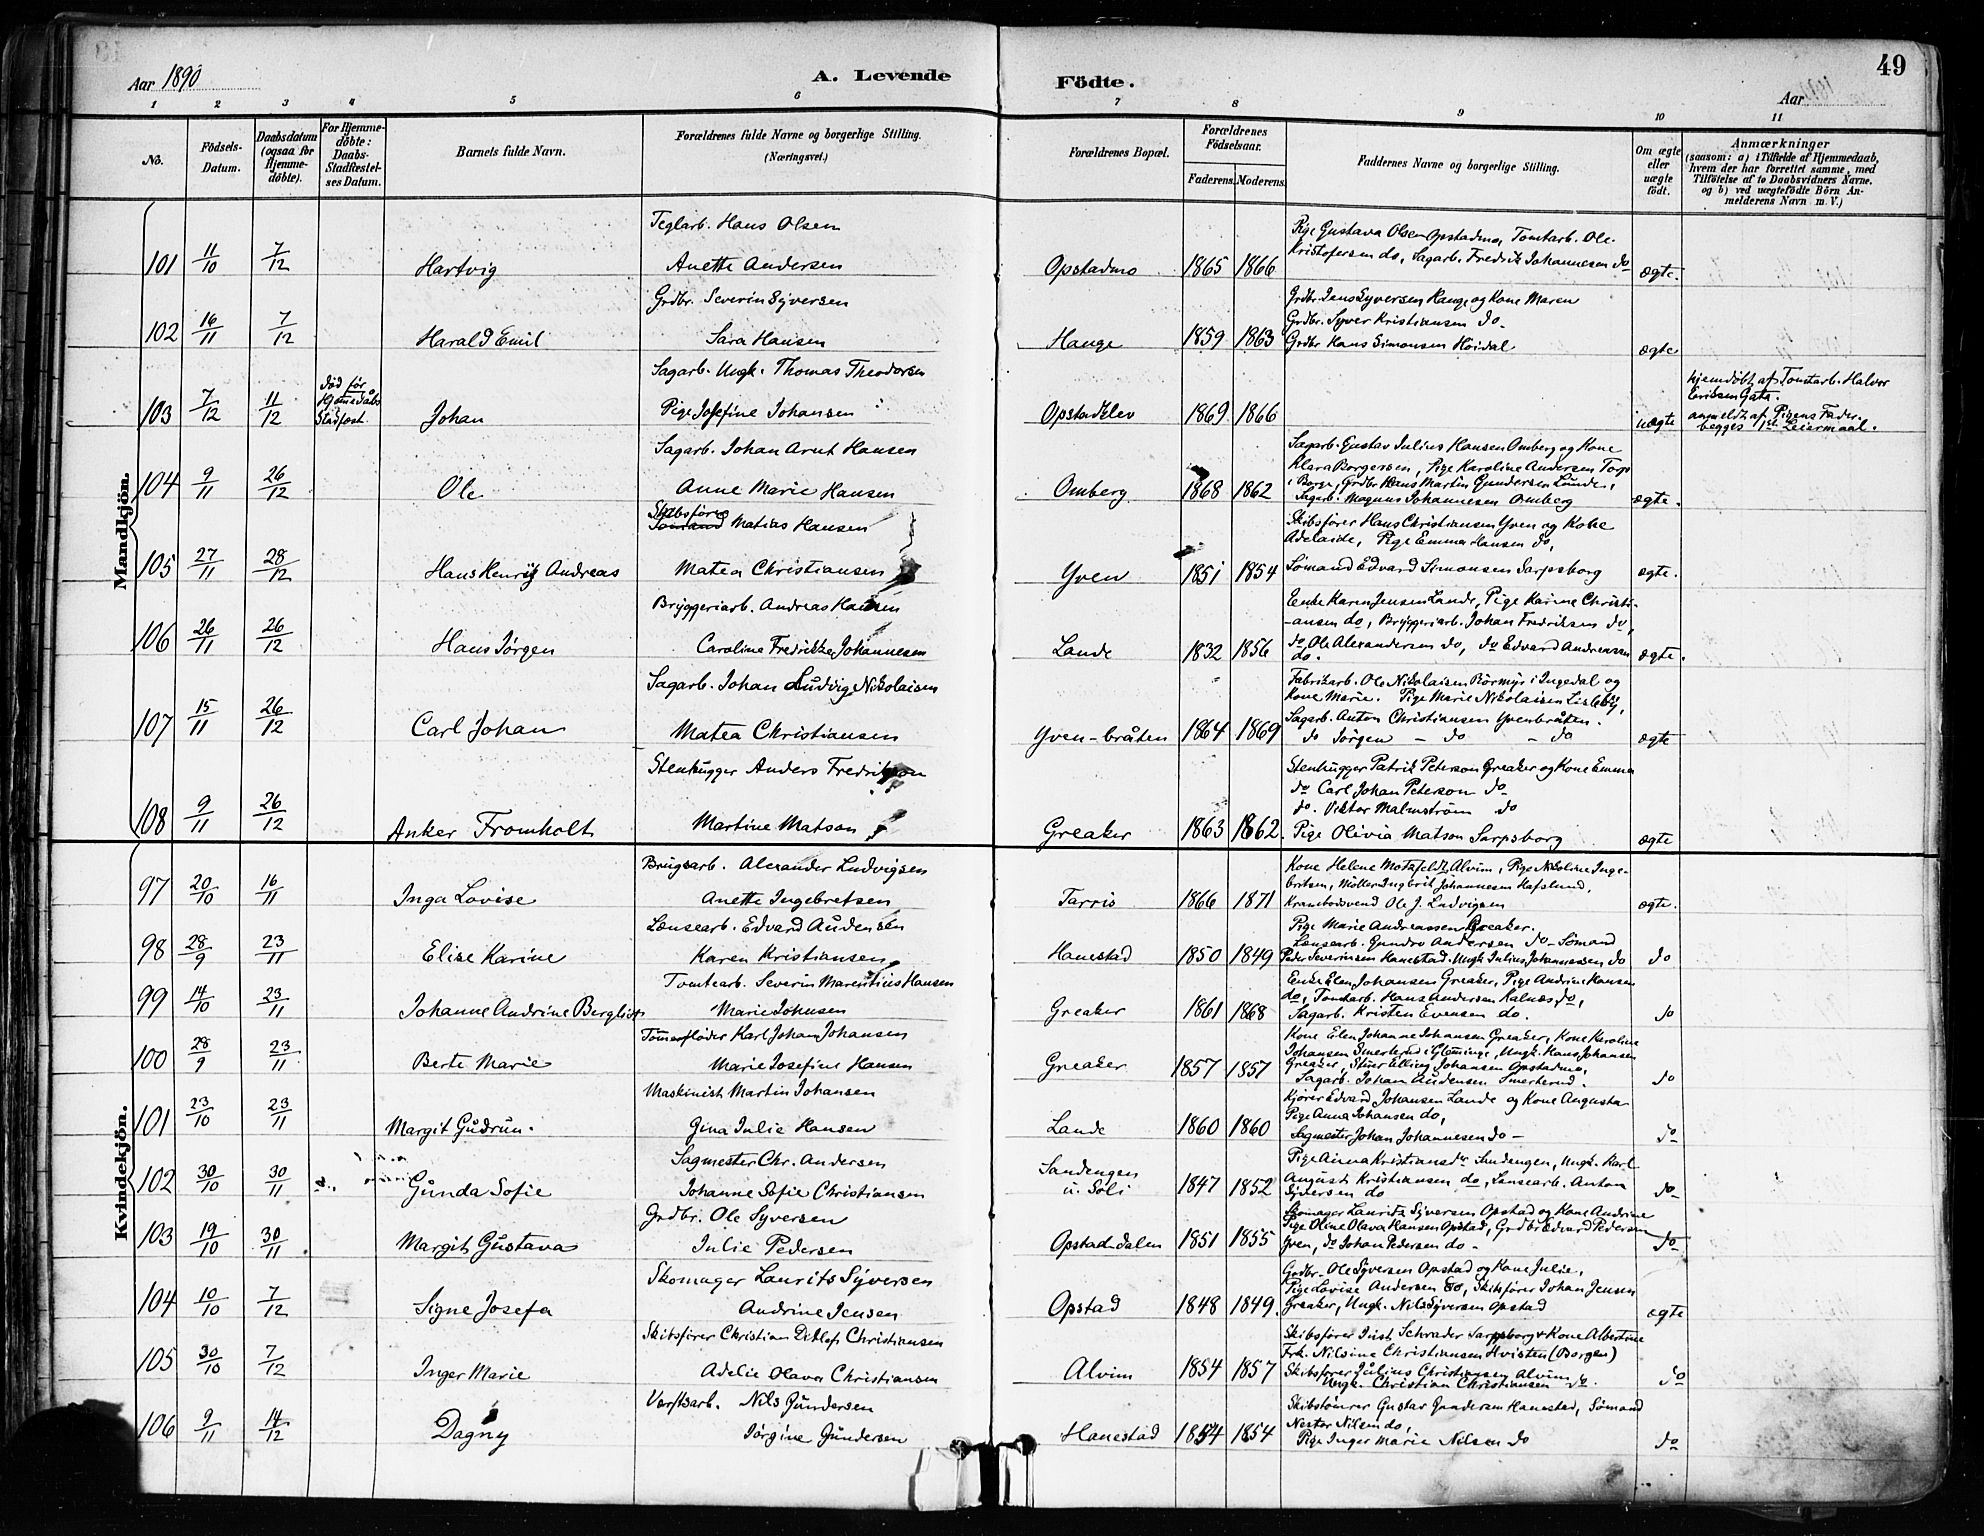 49
Aar 1890
A. Levende
Födte.
Aar
1 2 3 4 5 6 7 8 9 10 11
No.
Födsels-Datum.
Daabsdatum (ogsaa for Hjemme-döbte).
For Hjemme-döbte: Daabs-Stadfæstel-ses Datum.
Barnets fulde Navn.
Forældrenes fulde Navne og borgerlige Stilling.
(Næringsvei.)
Forældrenes Bopæl.
Forældrenes Födselsaar.
Faderens. Moderens.
Faddernes Navne og borgerlige Stilling.
Om ægte eller uægte födt.
Anmærkninger
(saasom: a) i Tilfælde af Hjemmedaab,
hvem der har forrettet samme, med
Tilföielse af to Daabsvidners Navne,
og b) ved uægtefödte Börn An-
melderens Navn m. V.)
Mandkjön.
Teglarb. Hans Olsen
Pige Gustava Olsen Opstadmo, Tomtarb. Ole
Kristofersen do, Sagarb. Fredrik Johannesen do
101 11/10 7/12 Hartvig Anette Andersen Opstadmo 1865 1866 ægte.
Grdbr. Severin Syversen
Grdbr. Jens Syversen Hauge og Kone Maren
Grdbr. Syver Kristiansen do.
102 16/11 7/12 Harald Emil Sara Hansen Hauge 1859 1863 Grdbr Hans Simonsen Hoidal ægte
Sagarb. Ungk. Thomas Theodorsen
død før Hjemedåbs Stadfæst.
hjemdöbt af Tomtarb. Halvor
Eriksen Gata.
103 7/12 11/12 Johan Pige Josefine Johansen Opstadelev 1869 1866 uægte anmeldt af Pigens Fader.
begges 1ste Leiermaal.
Sagarb. Johan Arnt Hansen
Sagarb. Gustav Julius Hansen Omberg og Kone
Klara Borgersen, Pige Karoline Andersen Torp
i Borge, Grdbr Hans Martin Gundersen Lunde,
104 9/11 26/12 Ole Anne Marie Hansen Omberg 1868 1862 Sagarb. Magnus Johannesen Omberg ægte.
Skibsfører
Sömand Matias Hansen
Skibsfører Hans Christiansen Yven og Kone
Adelaide, Pige Emma Hansen do,
105 27/11 28/12 Hans Henrik Andreas Matea Christiansen Yven 1851 1854 Sömand Edvard Simonsen Sarpsborg ægte.
Bryggeriarb. Andreas Hansen
Enke Karen Jensen Lande, Pige Karine Christi-
-ansen do, Bryggeriarb. Johan Fredriksen do,
106 26/11 26/12 Hans Jørgen Caroline Fredrikke Johannesen Lande 1832 1856 do Ole Alexandersen do, do Edvard Andreassen ægte.
do.
Sagarb. Johan Ludvig Nikolaisen
Fabrikarb. Ole Nikolaisen Rörmyr i Ingedal og
Kone Marie. Pige Marie Nikolaisen Lisleby,
Sagarb. Anton Christiansen Yvenbråten.
107 15/11 26/12 Carl Johan Matea Christiansen Yven-bråten 1864 1869 do Jörgen - do - do ægte
Stenhugger Anders Fredrikson
Stenhugger Patrik Peterson Greaker og Kone Emma
do Carl Johan Peterson do
do. Viktor Malmström do
108 9/11 26/12 Anker Fromholt Martine Matson Greaker 1863 1862. Pige Olivia Matson Sarpsborg ægte
Kvindekjön.
Brugsarb. Alexander Ludvigsen
Kone Helene Alvim, Pige Nikoline Inge-
britsen, Möller Ingbrit Johannesen Hafslund,
97 20/10 16/11 Inga Lovise Anette Ingebretsen Tarris 1866 1871 Krambodsvend Ole J. Ludvigsen ægte.
Lensearb. Edvard Audensen
Pige Marie Andreassen Greaker.
Lensearb. Gundro Andersen do - Sömand
98 28/9 23/11 Elise Karine Karen Kristiansen Hanestad 1850 1849 Peder Severinsen Hanestad. Ungk Julius Johannessen do do
Tomtearb. Severin Marentius Hansen
Enke Elen Johansen Greaker, Pige Andrine Hansen
do, Tomtarb. Hans Andersen Kalnæs do,
99 14/10 23/11 Johanne Andrine Bergliot Marie Johnsen Greaker 1861 1868 Sagarb. Kristen Evensen do. do
Tömmerfløder Karl Johan Johansen
Kone Elen Johanne Johansen Greaker, Kone Karoline
Johansen Smerterud i Glemminge, Ungk. Hans Johansen
100 28/9 23/11 Berte Marie Marie Josefine Hansen Greaker 1857 1857 Greaker, Stuer Elling Johansen Opstadmo,
Sagarb. Johan Audensen Smerterud. do
Maskinist Martin Johansen
Kjører Edvard Johansen Lande og Kone Augusta
Pige Anna Johansen do,
101 23/10 23/11 Margit Gudrun. Gina Julie Hansen Lande 1860 1860 Sagmester Johan Johannesen do - do
Sagmester Chr. Andersen
Sandengen
u. Soli
Pige Anna Kristiansdr Sandengen, Ungk. Karl
102 30/10 30/11 Gunda Sofie Johanne Sofie Christiansen 1847 1852 August Kristiansen do, Lensearb. Anton
Syversen do do
Grdbr. Ole Syversen
Skomager Laurits Syversen Opstad og Kone Andrine
Pige Oline Olava Hansen Opstad, Grdbr Edvard Pedersen
103 19/10 30/11 Margit Gustava Julie Pedersen Opstad-dalen 1851 1855 Yven, do Johan Pedersen do. do
Skomager Laurits Syversen
Grdbr. Ole Syversen Opstad og Kone Julie,
Pige Lovise Andersen do, Skibsfører Johan Jensen
104 10/10 7/12 Signe Josefa Andrine Jensen Opstad 1848 1849. Greaker, Ungk. Nils Syversen Opstad ægte
Skibsfører Christian Ditlef Christiansen
Skibsfører Just Schrader Sarpsborg & Kone Albertine
Frk. Nilsine Christiansen Hvisten (Borgen)
105 30/10 7/12 Inger Marie Adelie Olava Christiansen Alvim 1854 1857 Skibsfører Julius Christiansen Alvim
Ungk. Christian Christiansen do. do
Værftsarb. Nils Gundersen
Skibstömrer Gustav Gundersen Hanestad, Sömand
Nestor Nilsen do,
106 9/11 14/12 Dagny Jörgine Gundersen Hanestad 1854 1854 Pige Inger Marie Nilsen do do